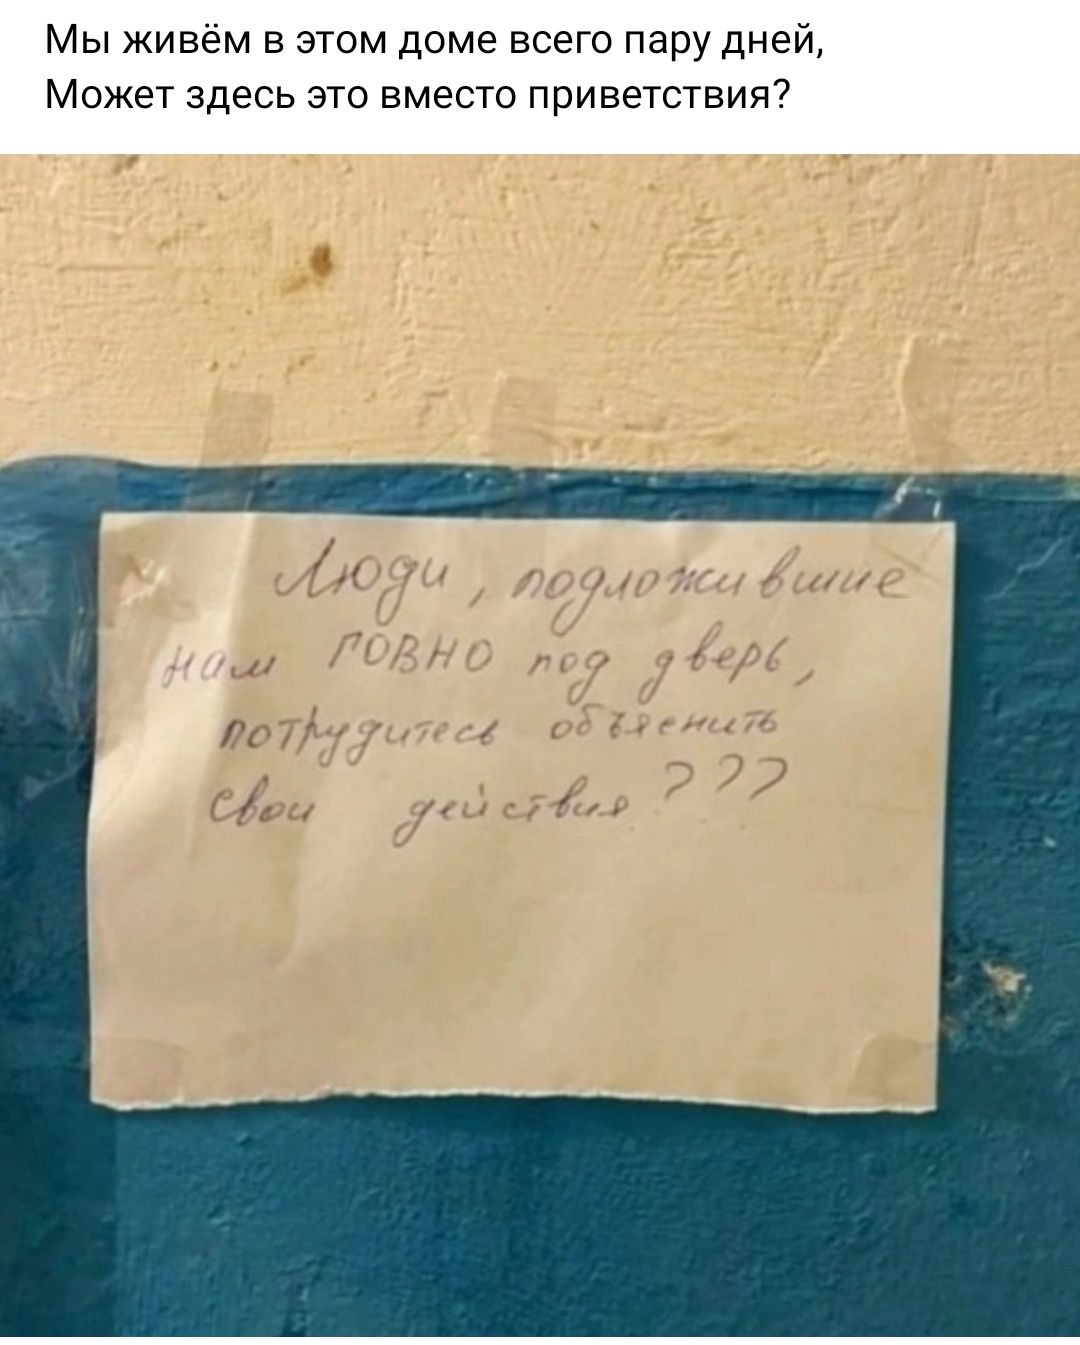 Мы живём в этом доме всего пару дней,
Может здесь это вместо приветствия?
Люди, подложившие
нам ГОВНО под дверь,
потрудитесь объяснить
свои действия???